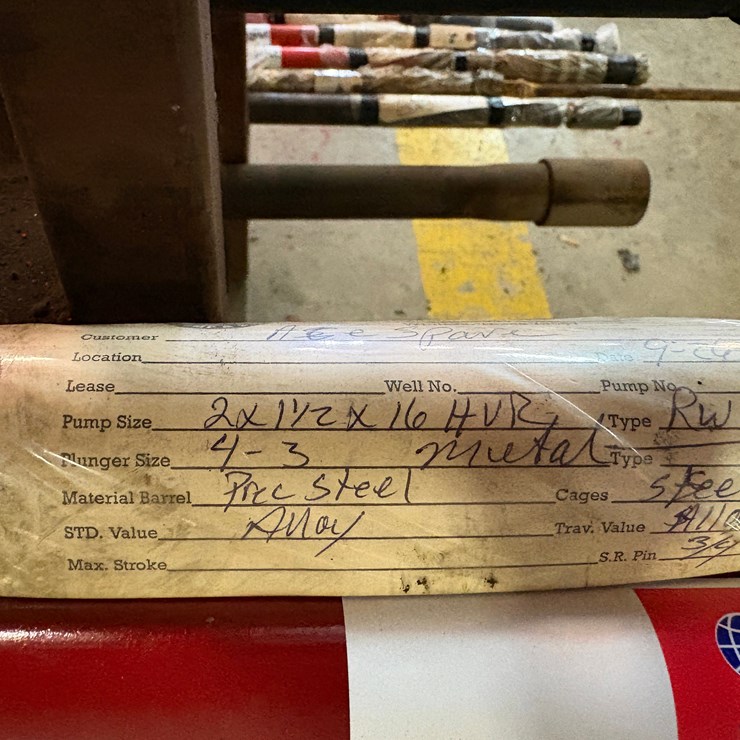 Customer Spare
Location Date 9-26
Lease Well No. Pump No.
Pump Size 2 x 1 1/2 x 16 HVR Type RW
Plunger Size 4-3 metal Type
Material Barrel Prec Steel Cages Stee
STD. Value Alloy Trav. Value Allo
Max. Stroke S.R. Pin 3/4